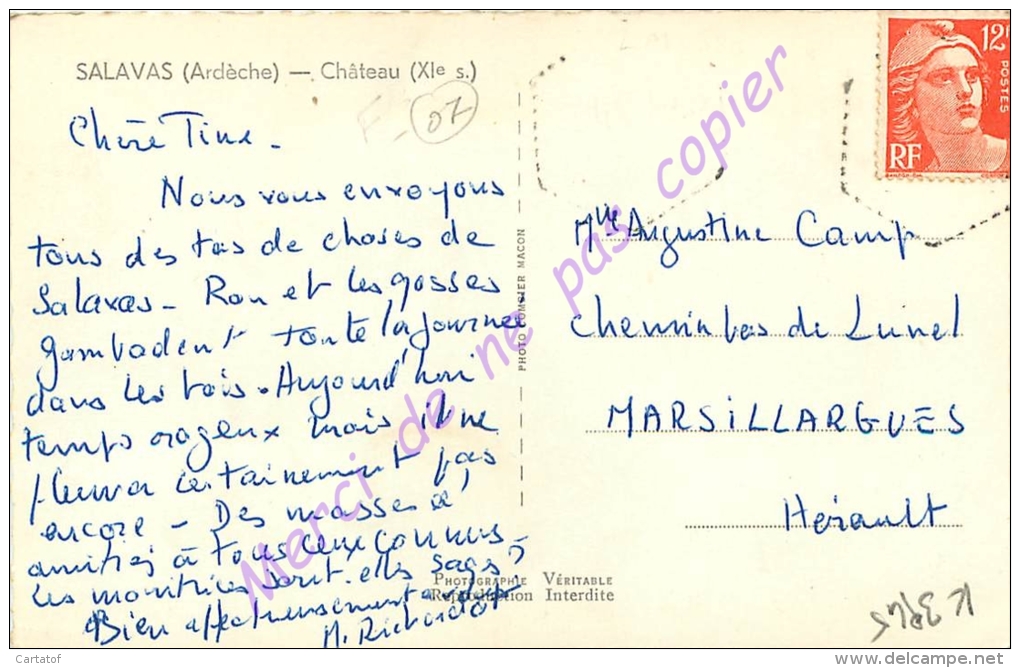 SALAVAS (Ardèche) — Château (XIe s.)
07
Chère Tine -
Nous vous envoyons
tous des tas de choses de
Salavas - Ron et les gosses
gambadent toute la journée
dans les bois. Aujourd'hui
temps orageux mais il ne
pleuvra certainement pas
encore - Des masses d'
amitiés à tous ceux connus
Les monitrices sont-elles sages ?
Bien affectueusement
M. Richardot
PHOTO COMBIER MACON
12F
POSTES
RF
Mlle Augustine Camp
Chemin bas de Lunel
MARSILLARGUES
Hérault
PHOTOGRAPHIE VÉRITABLE
Reproduction Interdite
Merci de ne pas copier
Cartatof
www.delcampe.net